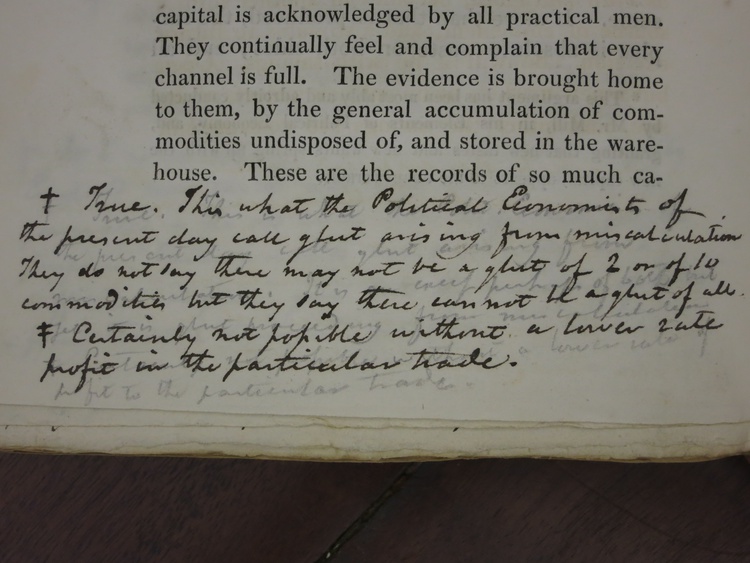 capital is acknowledged by all practical men.
They continually feel and complain that every
channel is full. The evidence is brought home
to them, by the general accumulation of com-
modities undisposed of, and stored in the ware-
house. These are the records of so much ca-
† True. This what the Political Economists of
the present day call glut arising from miscalculation
They do not say there may not be a glut of 2 or of 10
commodities but they say there cannot be a glut of all.
‡ Certainly not possible without a lower rate
profit in the particular trade.